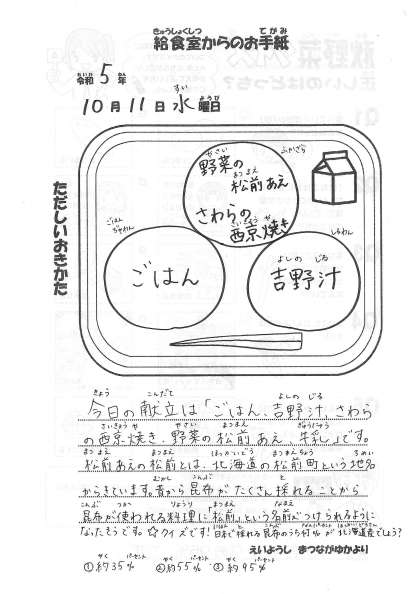 きゅうしょくしつ てがみ
給食室からのお手紙
れいわ ねん
令和 5 年
すい ようび
10月11日 水 曜日
ただしいおきかた
やさい
野菜の
まつまえ
松前あえ
さわらの
さいきょう や
西京焼き
ふかざら
ごはん
ちゃわん
ごはん
しるわん
よしの じる
吉野汁
きょう こんだて よしの じる
今日の献立は「ごはん、吉野汁、さわら
さいきょう や やさい まつまえ ぎゅうにゅう
の西京焼き、野菜の松前あえ、牛乳」です。
まつまえ まつまえ ほっかいどう まつまえちょう ちめい
松前あえの松前とは、北海道の松前町という地名
むかし こんぶ と
からきています。昔から昆布がたくさん採れることから
こんぶ つか りょうり まつまえ なまえ
昆布が使われる料理に「松前」という名前がつけられるように
なったそうです。☆クイズです!日本で採れる昆布のうち何%が北海道産でしょう?
えいようし まつながゆかより
やく パーセント やく パーセント やく パーセント
①約35% ②約55% ③約95%